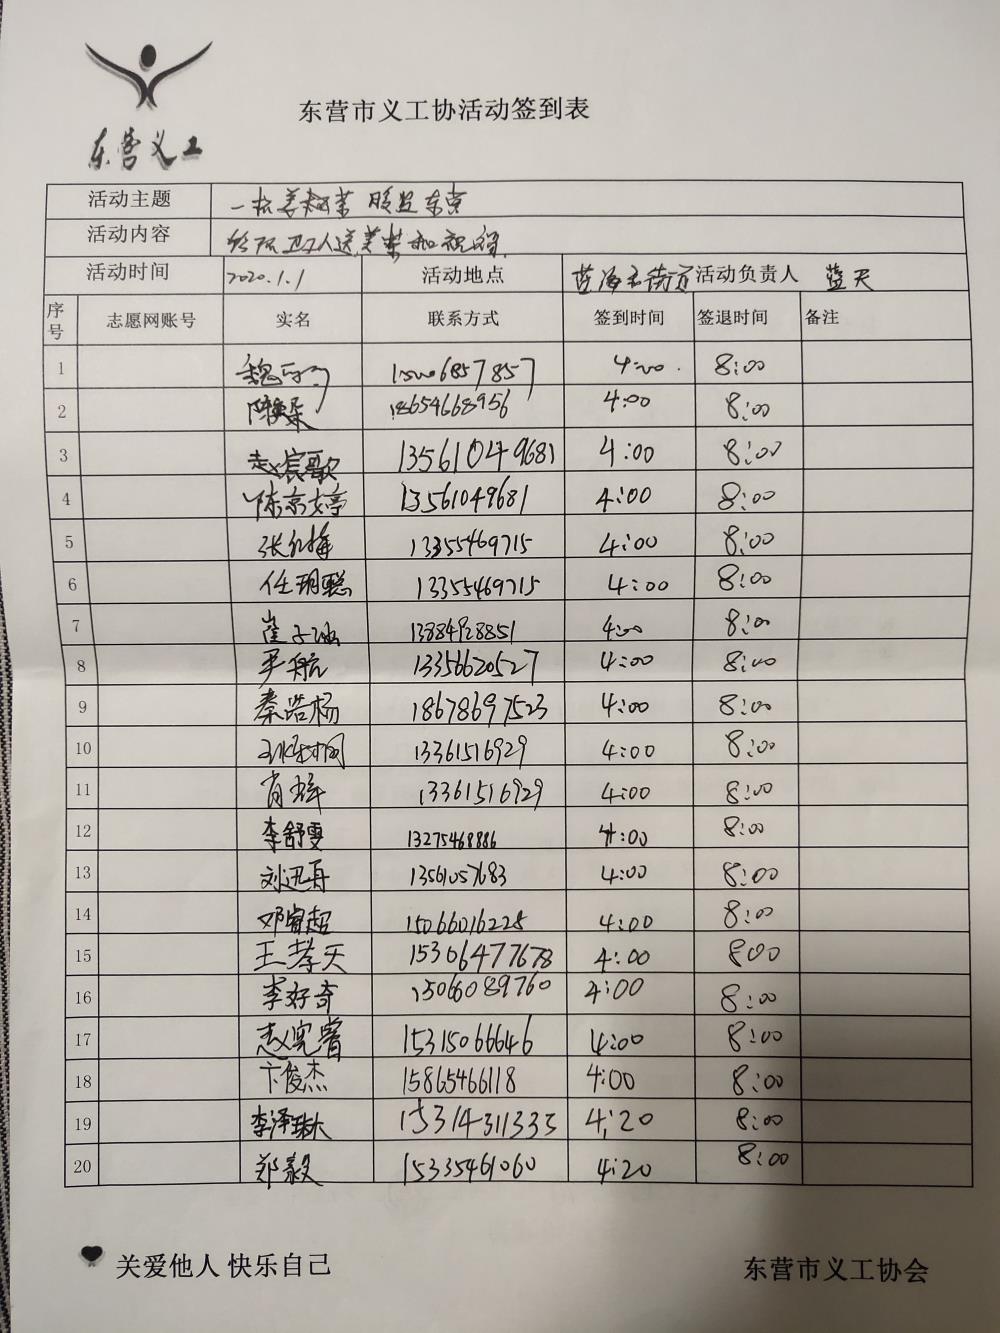 东营市义工协活动签到表
东营义工
活动主题 一杯姜 暖 东京
活动内容 给环卫工人送 和祝福
活动时间 2020.1.1 活动地点 蓝海 街 活动负责人 蓝天
序号 志愿网账号 实名 联系方式 签到时间 签退时间 备注
1 魏 15006857857 4:00 8:00
2 陈 朵 18654668956 4:00 8:00
3 赵宸歌 13561049681 4:00 8:00
4 陈京婷 13561049681 4:00 8:00
5 张红梅 13355469715 4:00 8:00
6 任玥聪 13355469715 4:00 8:00
7 崔子涵 13884928851 4:00 8:00
8 尹航 13356620527 4:00 8:00
9 秦浩杨 18678697523 4:00 8:00
10 13361516929 4:00 8:00
11 肖 13361516929 4:00 8:00
12 李舒雯 13275468886 4:00 8:00
13 刘迅舟 13561057683 4:00 8:00
14 邓睿超 15066016228 4:00 8:00
15 王孝天 15306477678 4:00 8:00
16 李好奇 15066089760 4:00 8:00
17 赵宪睿 15315066646 4:00 8:00
18 卞俊杰 15865466118 4:00 8:00
19 李泽琳 15314311335 4:20 8:00
20 郑毅 15335461060 4:20 8:00
关爱他人 快乐自己 东营市义工协会